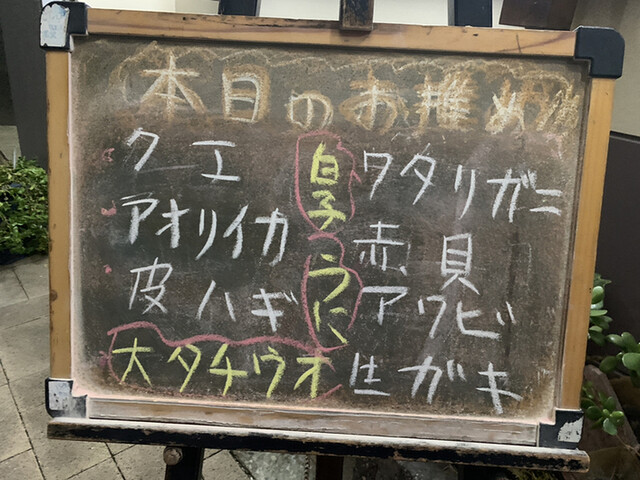 本日のお推め
クエ
アオリイカ
皮ハギ
大タチウオ
白子
うに
ワタリガニ
赤貝
アワビ
生ガキ